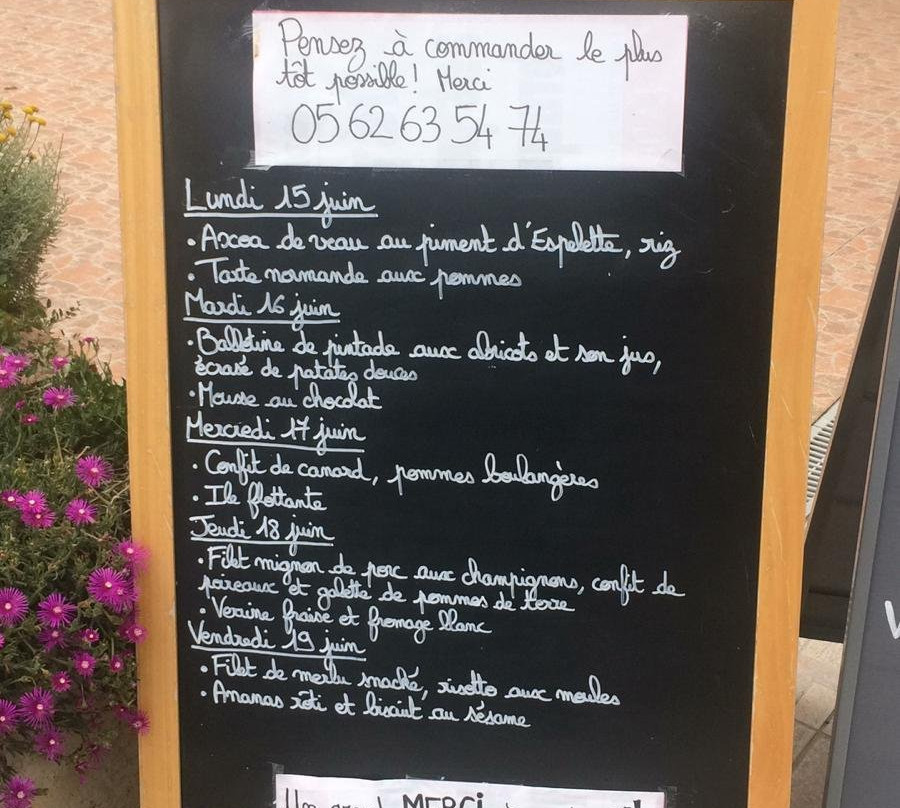 Pensez à commander le plus
tôt possible! Merci
05 62 63 54 74
Lundi 15 juin
• Axoa de veau au piment d'Espelette, riz
• Tarte normande aux pommes
Mardi 16 juin
• Ballotine de pintade aux abricots et son jus,
écrasé de patates douces
• Mousse au chocolat
Mercredi 17 juin
• Confit de canard, pommes boulangères
• Ile flottante
Jeudi 18 juin
• Filet mignon de porc aux champignons, confit de
poireaux et galette de pommes de terre
• Verrine fraise et fromage blanc
Vendredi 19 juin
• Filet de merlu snacké, risotto aux moules
• Ananas rôti et biscuit au sésame
Un MERCi